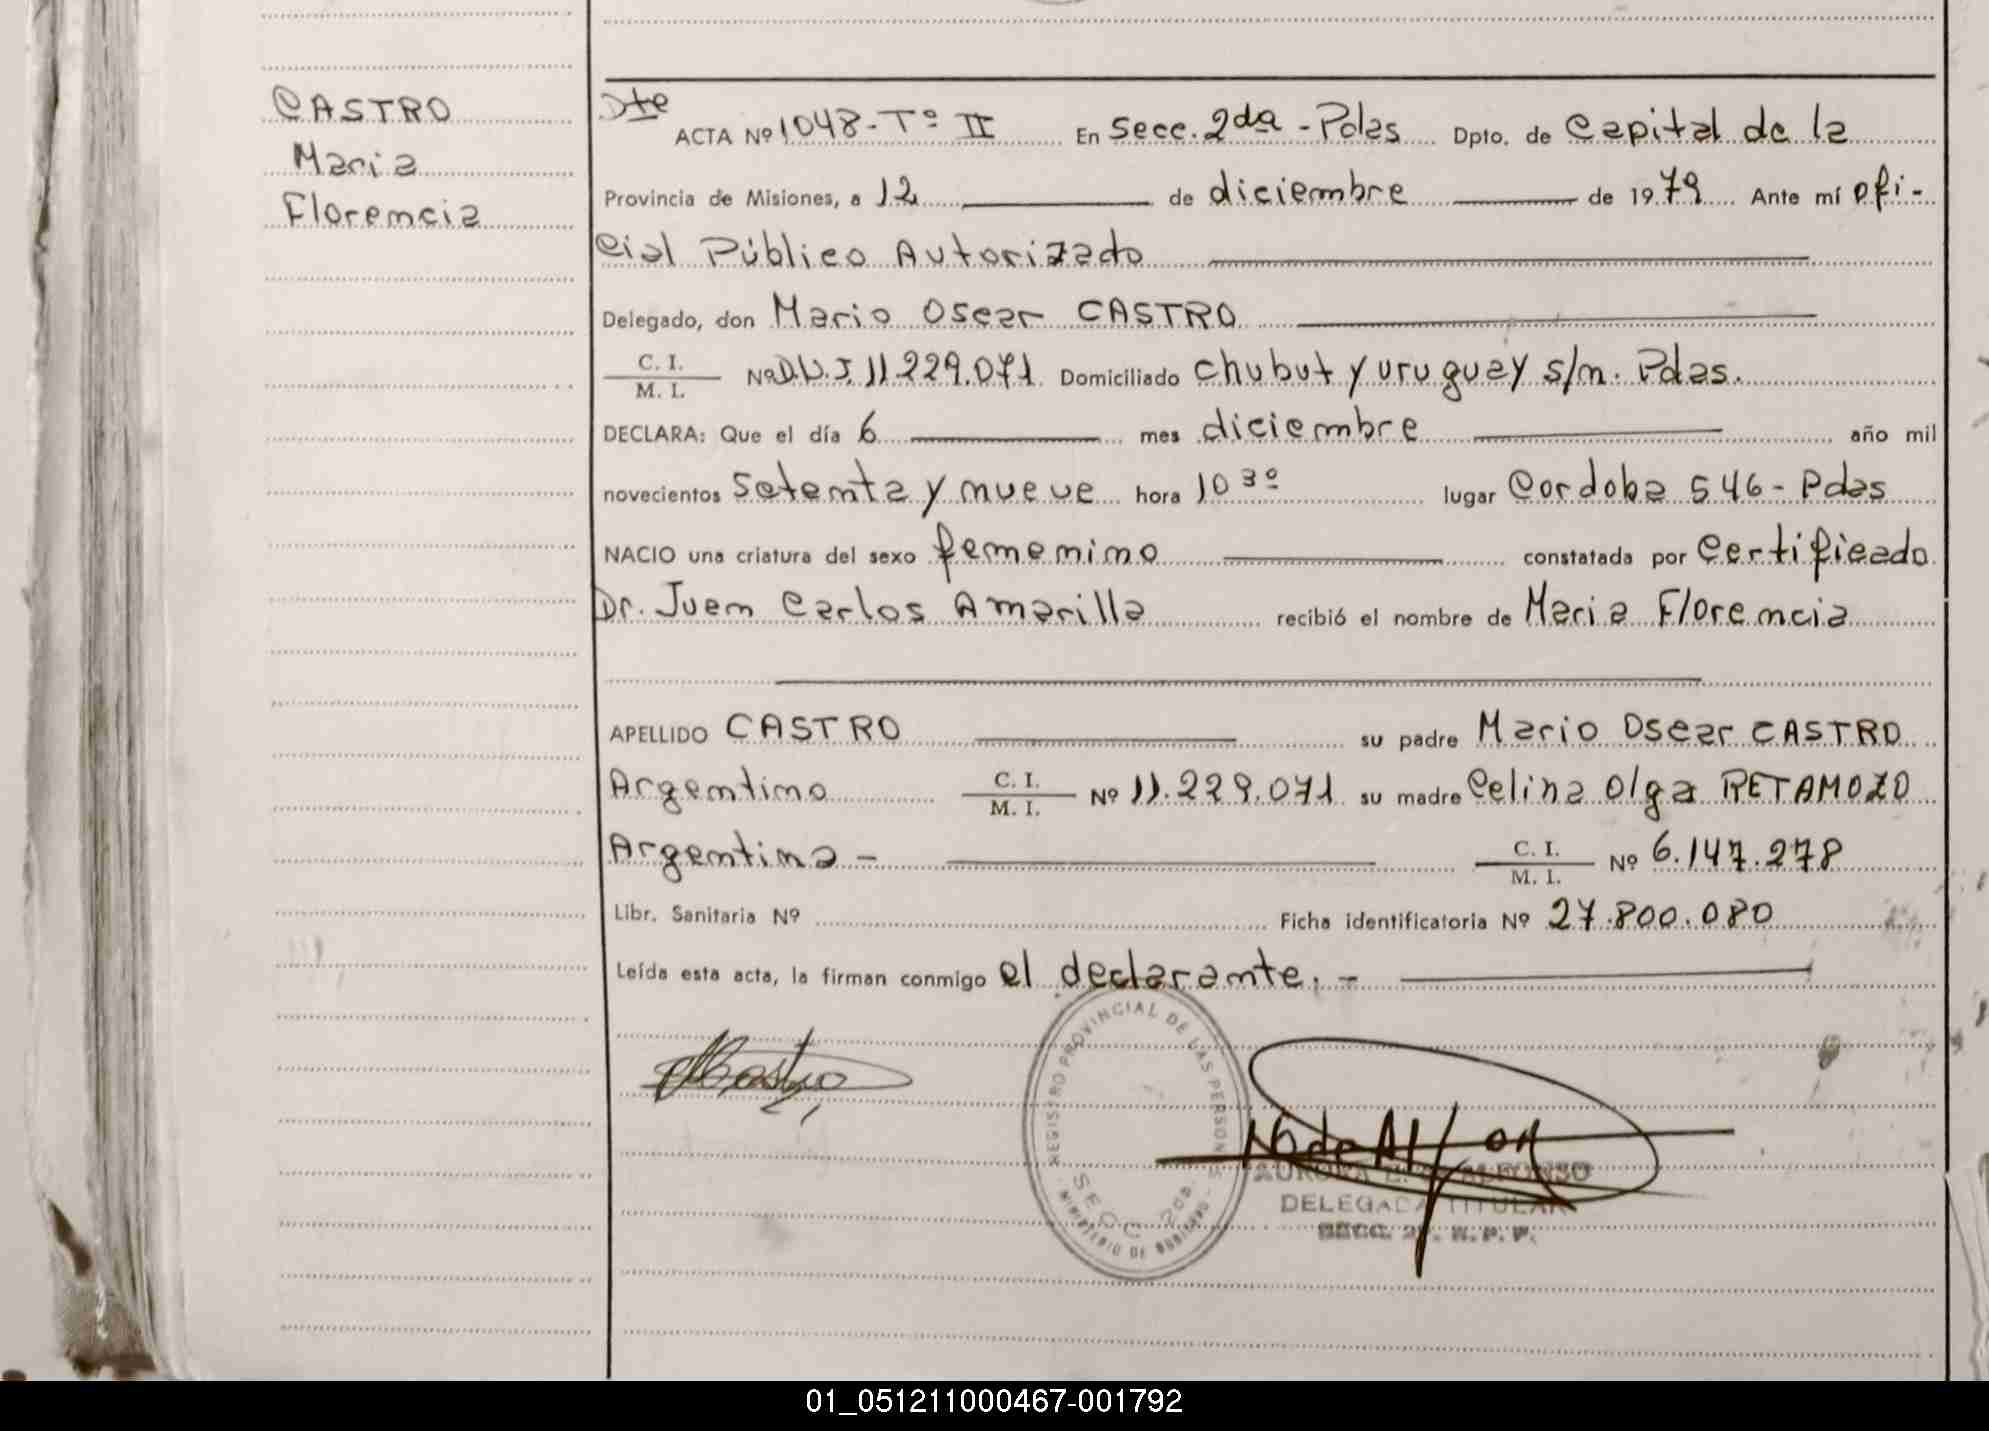 CASTRO
Maria
Florencia
Dte
ACTA Nº 1048-Tº II En Secc. 2da - Pdas Dpto. de Capital de la
Provincia de Misiones, a 12 de diciembre de 1979 Ante mí ofi-
cial Público Autorizado
Delegado, don Mario Oscar CASTRO
C. I.
M. I. Nº D.N.I. 11.229.071 Domiciliado Chubut y uruguay s/n. Pdas.
DECLARA: Que el día 6 mes diciembre año mil
novecientos setenta y nueve hora 10 30 lugar Cordoba 546 - Pdas
NACIO una criatura del sexo femenino constatada por Certificado
Dr. Juan Carlos Amarilla recibió el nombre de Maria Florencia
APELLIDO CASTRO su padre Mario Oscar CASTRO
Argentino C. I.
M. I. Nº 11.229.071 su madre Celina Olga RETAMOZO
Argentina - C. I.
M. I. Nº 6.147.278
Libr. Sanitaria Nº Ficha identificatoria Nº 27.800.080
Leída esta acta, la firman conmigo el declarante. -
MCastro
REGISTRO PROVINCIAL DE LAS PERSONAS
SECC 2da.
MINISTERIO DE GOBIERNO
AURORA ALFONSO
DELEGADA TITULAR
SECC. 2ª. R. P. P.
01_051211000467-001792